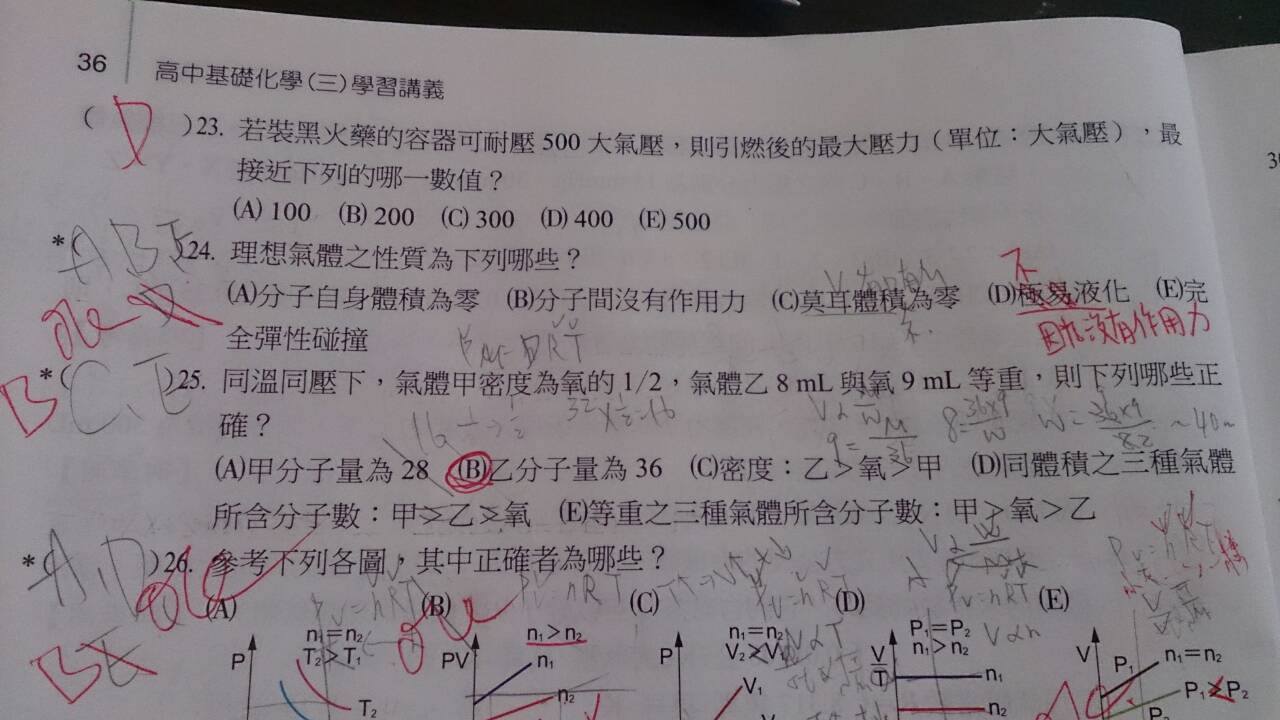 36 高中基礎化學(三)學習講義
( D )23. 若裝黑火藥的容器可耐壓 500 大氣壓，則引燃後的最大壓力（單位：大氣壓），最
接近下列的哪一數值？
(A) 100 (B) 200 (C) 300 (D) 400 (E) 500
*( ABE )24. 理想氣體之性質為下列哪些？
不
(A)分子自身體積為零 (B)分子間沒有作用力 (C)莫耳體積為零 (D)極易液化 (E)完
全彈性碰撞
因為沒有作用力
*( B C.E )25. 同溫同壓下，氣體甲密度為氧的 1/2，氣體乙 8 mL 與氧 9 mL 等重，則下列哪些正
確？
32×1/2=16
(A)甲分子量為 28 (B)乙分子量為 36 (C)密度：乙>氧>甲 (D)同體積之三種氣體
所含分子數：甲>乙>氧 (E)等重之三種氣體所含分子數：甲>氧>乙
*( A.D )26. 參考下列各圖，其中正確者為哪些？
BE
PV=nRT PV=nRT PV=nRT PV=nRT
(A) (B) (C) (D) (E)
P n₁=n₂ T₂>T₁ T₂
PV n₁>n₂ n₁ n₂
P n₁=n₂ V₂>V₁ V₁
V/T P₁=P₂ n₁>n₂ n₁ n₂
V∝n
V P₁ n₁=n₂ P₁>P₂ P₂